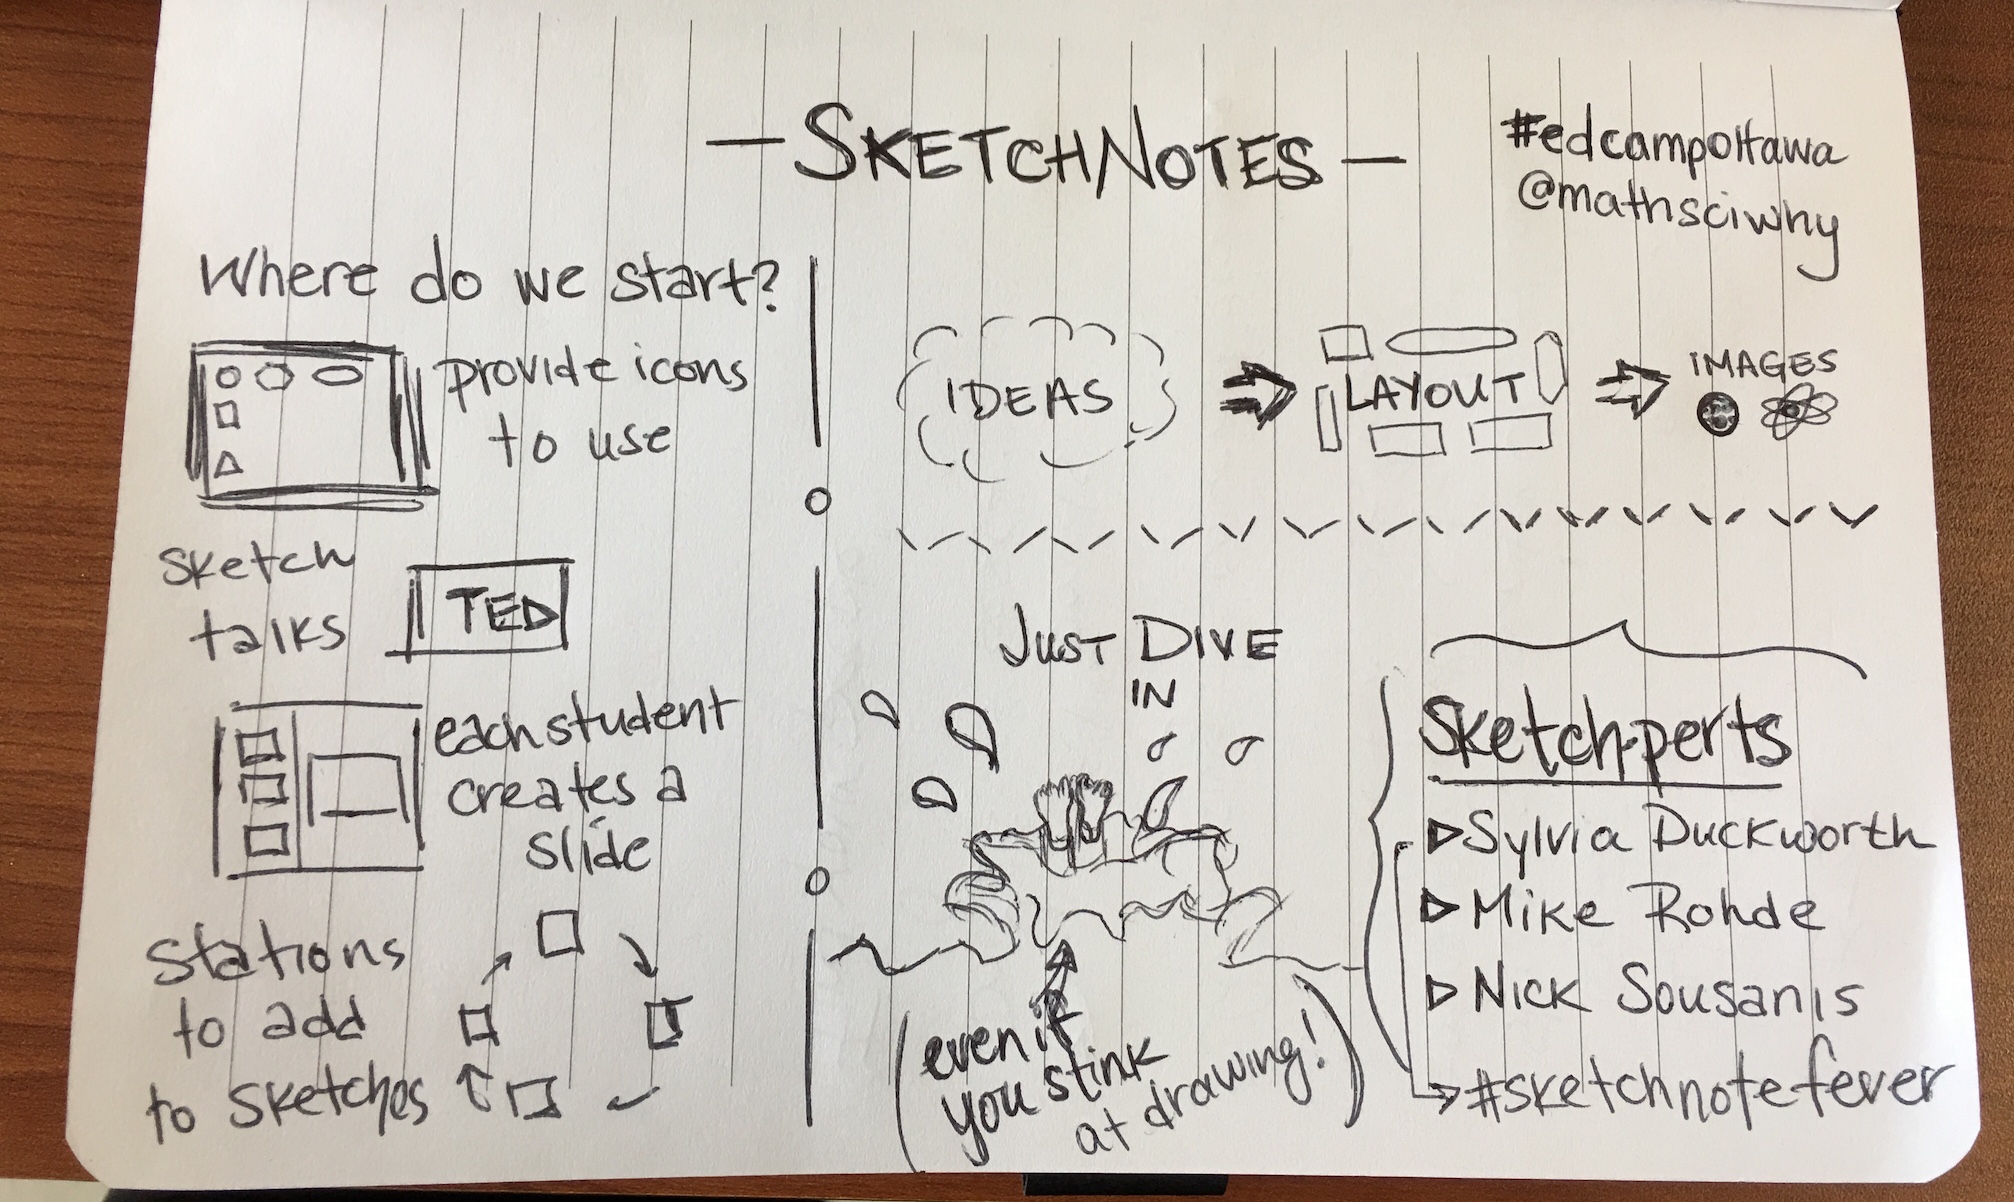 — SKETCHNOTES —
#edcampottawa
@mathsciwhy
Where do we start?
provide icons
to use
sketch
talks
TED
each student
creates a
slide
stations
to add
to sketches
IDEAS
LAYOUT
IMAGES
JUST DIVE
IN
(even if
you stink
at drawing!)
Sketch-perts
Sylvia Duckworth
Mike Rohde
Nick Sousanis
#sketchnotefever